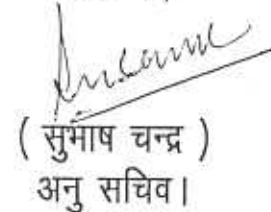 ( सुभाष चन्द्र )
अनु सचिव।